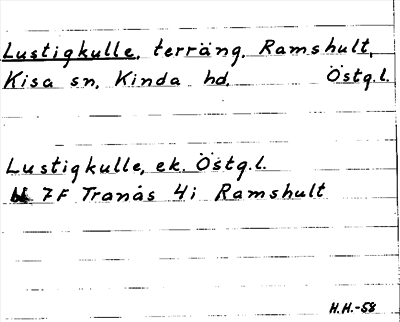 Lustigkulle, terräng, Ramshult,
Kisa sn, Kinda hd, Östg.l.
Lustigkulle, ek. Östg.l.
7F Tranås 4i Ramshult
H.H.-58